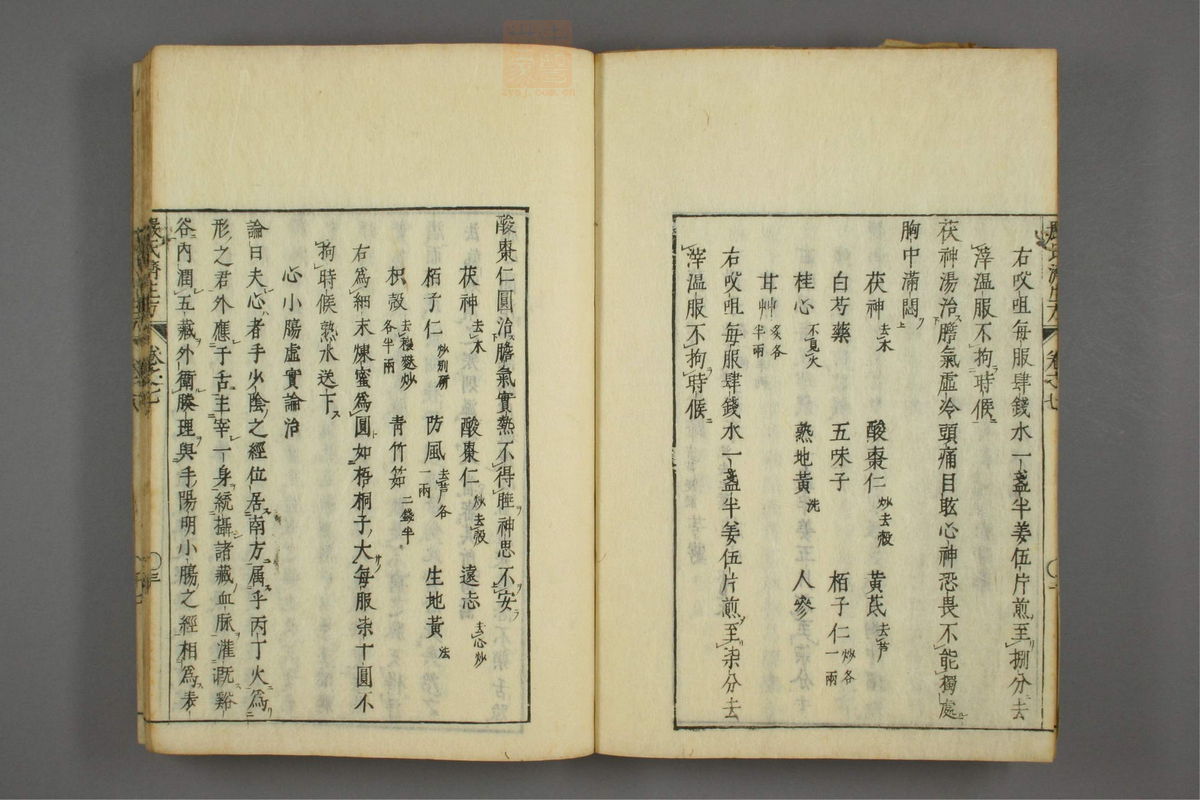 右㕮咀每服肆錢水一盞半姜伍片煎至捌分去
滓溫服不拘時候
茯神湯治膽氣虛冷頭痛目眩心神恐畏不能獨處
胸中滿悶
茯神去木 酸棗仁炒去殼 黃芪去芦
白芍藥 五味子 栢子仁炒各一兩
桂心不見火 熟地黃洗 人參
甘艸炙各半兩
右㕮咀每服肆錢水一盞半姜伍片煎至柒分去
滓溫服不拘時候
酸棗仁圓治膽氣實熱不得睡神思不安
茯神去木 酸棗仁炒去殼 遠志去心炒
栢子仁炒別研 防風去芦各一兩 生地黃洗
枳殼去穰麩炒各半兩 青竹茹二錢半
右為細末煉蜜為圓如梧桐子大每服柒十圓不
拘時候熟水送下
心小腸虛實論治
論曰夫心者手少陰之經位居南方属乎丙丁火為
形之君外應于舌主宰一身統攝諸藏血脉灌溉谿
谷內潤五藏外衛腠理與手陽明小腸之經相為表